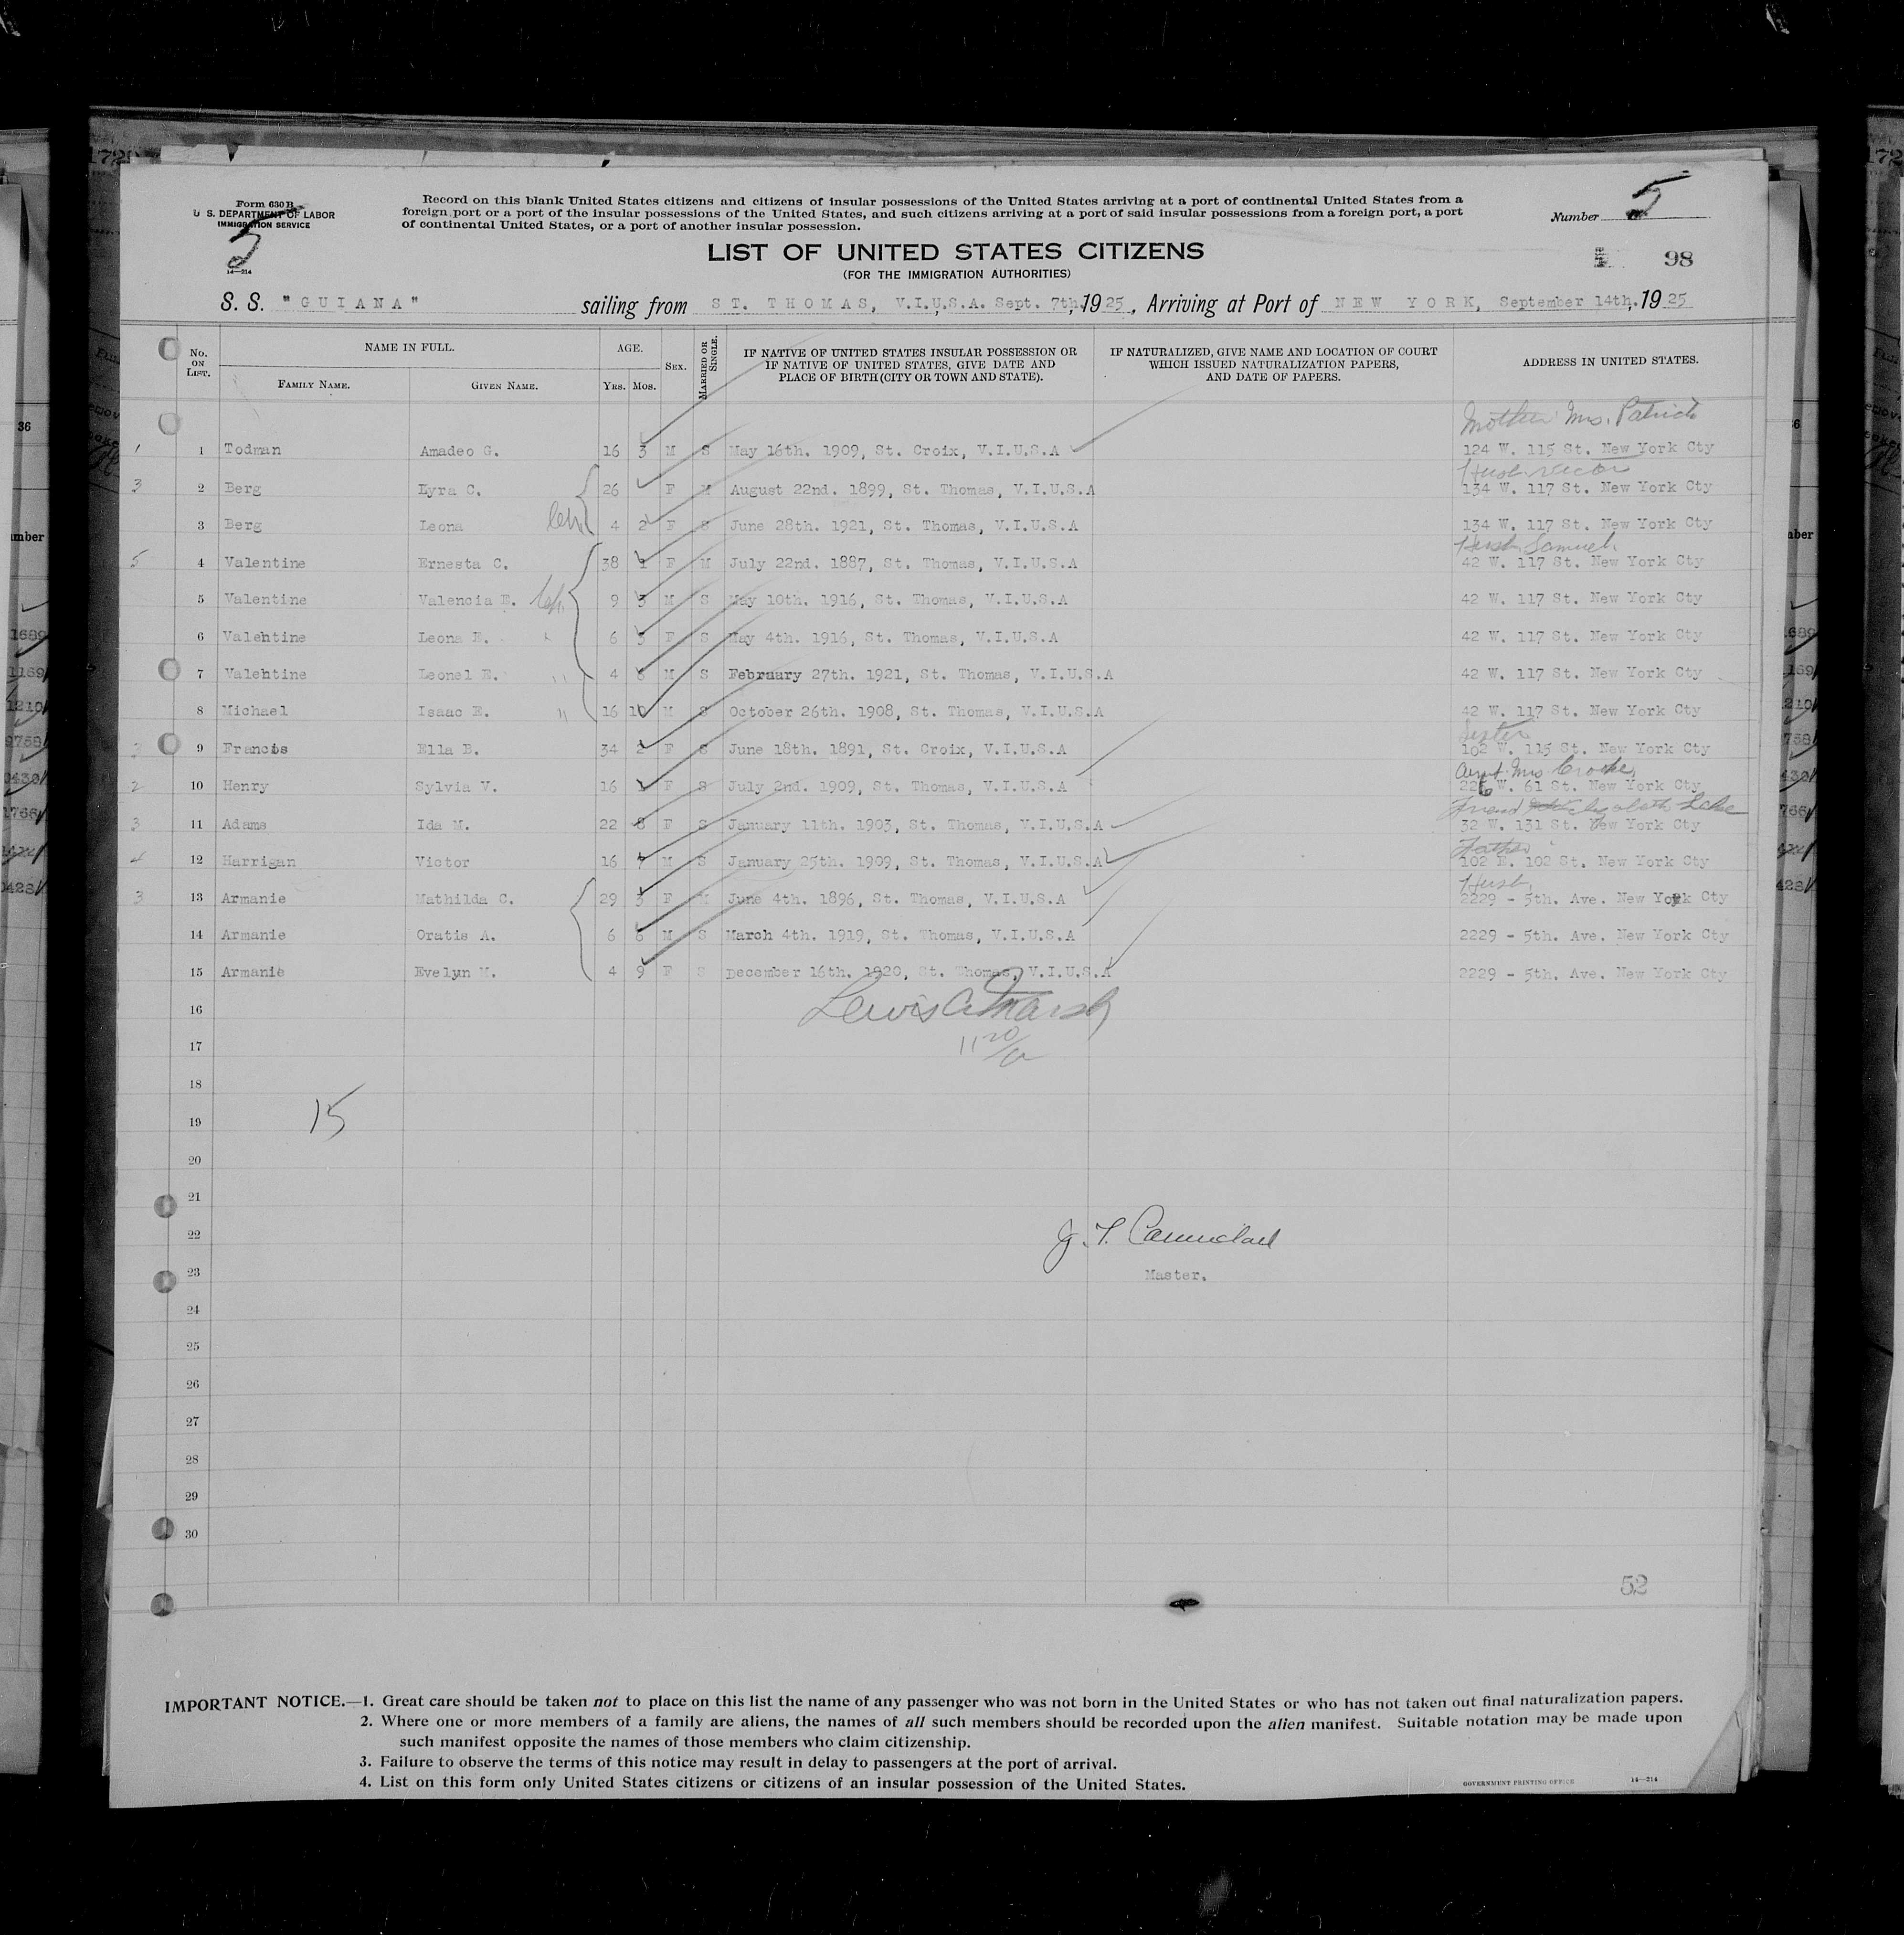 Form 630 B
U. S. DEPARTMENT OF LABOR
IMMIGRATION SERVICE
5
14—214
Record on this blank United States citizens and citizens of insular possessions of the United States arriving at a port of continental United States from a
foreign port or a port of the insular possessions of the United States, and such citizens arriving at a port of said insular possessions from a foreign port, a port
of continental United States, or a port of another insular possession.
Number 5
98
LIST OF UNITED STATES CITIZENS
(FOR THE IMMIGRATION AUTHORITIES)
S. S. "GUIANA" sailing from ST. THOMAS, V.I.U.S.A. Sept. 7th, 1925, Arriving at Port of NEW YORK, September 14th, 1925
No. ON LIST. NAME IN FULL. AGE. SEX. MARRIED OR SINGLE. IF NATIVE OF UNITED STATES INSULAR POSSESSION OR IF NATIVE OF UNITED STATES, GIVE DATE AND PLACE OF BIRTH (CITY OR TOWN AND STATE). IF NATURALIZED, GIVE NAME AND LOCATION OF COURT WHICH ISSUED NATURALIZATION PAPERS, AND DATE OF PAPERS. ADDRESS IN UNITED STATES.
FAMILY NAME. GIVEN NAME. YRS. MOS.
Mother Mrs. Patrick
1 1 Todman Amadeo G. 16 3 M S May 16th. 1909, St. Croix, V.I.U.S.A 124 W. 115 St. New York Cty
Husb. Victor
3 2 Berg Eyra C. 26 F M August 22nd. 1899, St. Thomas, V.I.U.S.A 134 W. 117 St. New York Cty
3 Berg Leona 4 2 F S June 28th. 1921, St. Thomas, V.I.U.S.A 134 W. 117 St. New York Cty
Husb. Samuel
5 4 Valentine Ernesta C. 38 1 F M July 22nd. 1887, St. Thomas, V.I.U.S.A 42 W. 117 St. New York Cty
5 Valentine Valencia E. 9 3 M S May 10th. 1916, St. Thomas, V.I.U.S.A 42 W. 117 St. New York Cty
6 Valentine Leona E. 6 3 F S May 4th. 1916, St. Thomas, V.I.U.S.A 42 W. 117 St. New York Cty
7 Valentine Leonel E. " 4 6 M S February 27th. 1921, St. Thomas, V.I.U.S.A 42 W. 117 St. New York Cty
8 Michael Isaac E. " 16 10 M S October 26th. 1908, St. Thomas, V.I.U.S.A 42 W. 117 St. New York Cty
Sister
3 9 Francis Ella B. 34 2 F S June 18th. 1891, St. Croix, V.I.U.S.A 102 W. 115 St. New York Cty
Aunt Mrs Crooke
2 10 Henry Sylvia V. 16 1 F S July 2nd. 1909, St. Thomas, V.I.U.S.A 226 W. 61 St. New York Cty
Friend Elizabeth
3 11 Adams Ida M. 22 8 F S January 11th. 1903, St. Thomas, V.I.U.S.A 32 W. 131 St. New York Cty
Father
4 12 Harrigan Victor 16 7 M S January 25th. 1909, St. Thomas, V.I.U.S.A 102 E. 102 St. New York Cty
Husb.
3 13 Armanie Mathilda C. 29 3 F M June 4th. 1896, St. Thomas, V.I.U.S.A 2229 - 5th. Ave. New York Cty
14 Armanie Oratis A. 6 6 M S March 4th. 1919, St. Thomas, V.I.U.S.A 2229 - 5th. Ave. New York Cty
15 Armanie Evelyn M. 4 9 F S December 16th. 1920, St. Thomas, V.I.U.S.A 2229 - 5th. Ave. New York Cty
16
Lewis A Marsh
17
11 20/a
18
15
19
20
21
22
J. T. Carmichael
23
Master.
24
25
26
27
28
29
30
52
IMPORTANT NOTICE.—1. Great care should be taken not to place on this list the name of any passenger who was not born in the United States or who has not taken out final naturalization papers.
2. Where one or more members of a family are aliens, the names of all such members should be recorded upon the alien manifest. Suitable notation may be made upon
such manifest opposite the names of those members who claim citizenship.
3. Failure to observe the terms of this notice may result in delay to passengers at the port of arrival.
4. List on this form only United States citizens or citizens of an insular possession of the United States.
GOVERNMENT PRINTING OFFICE 14—214